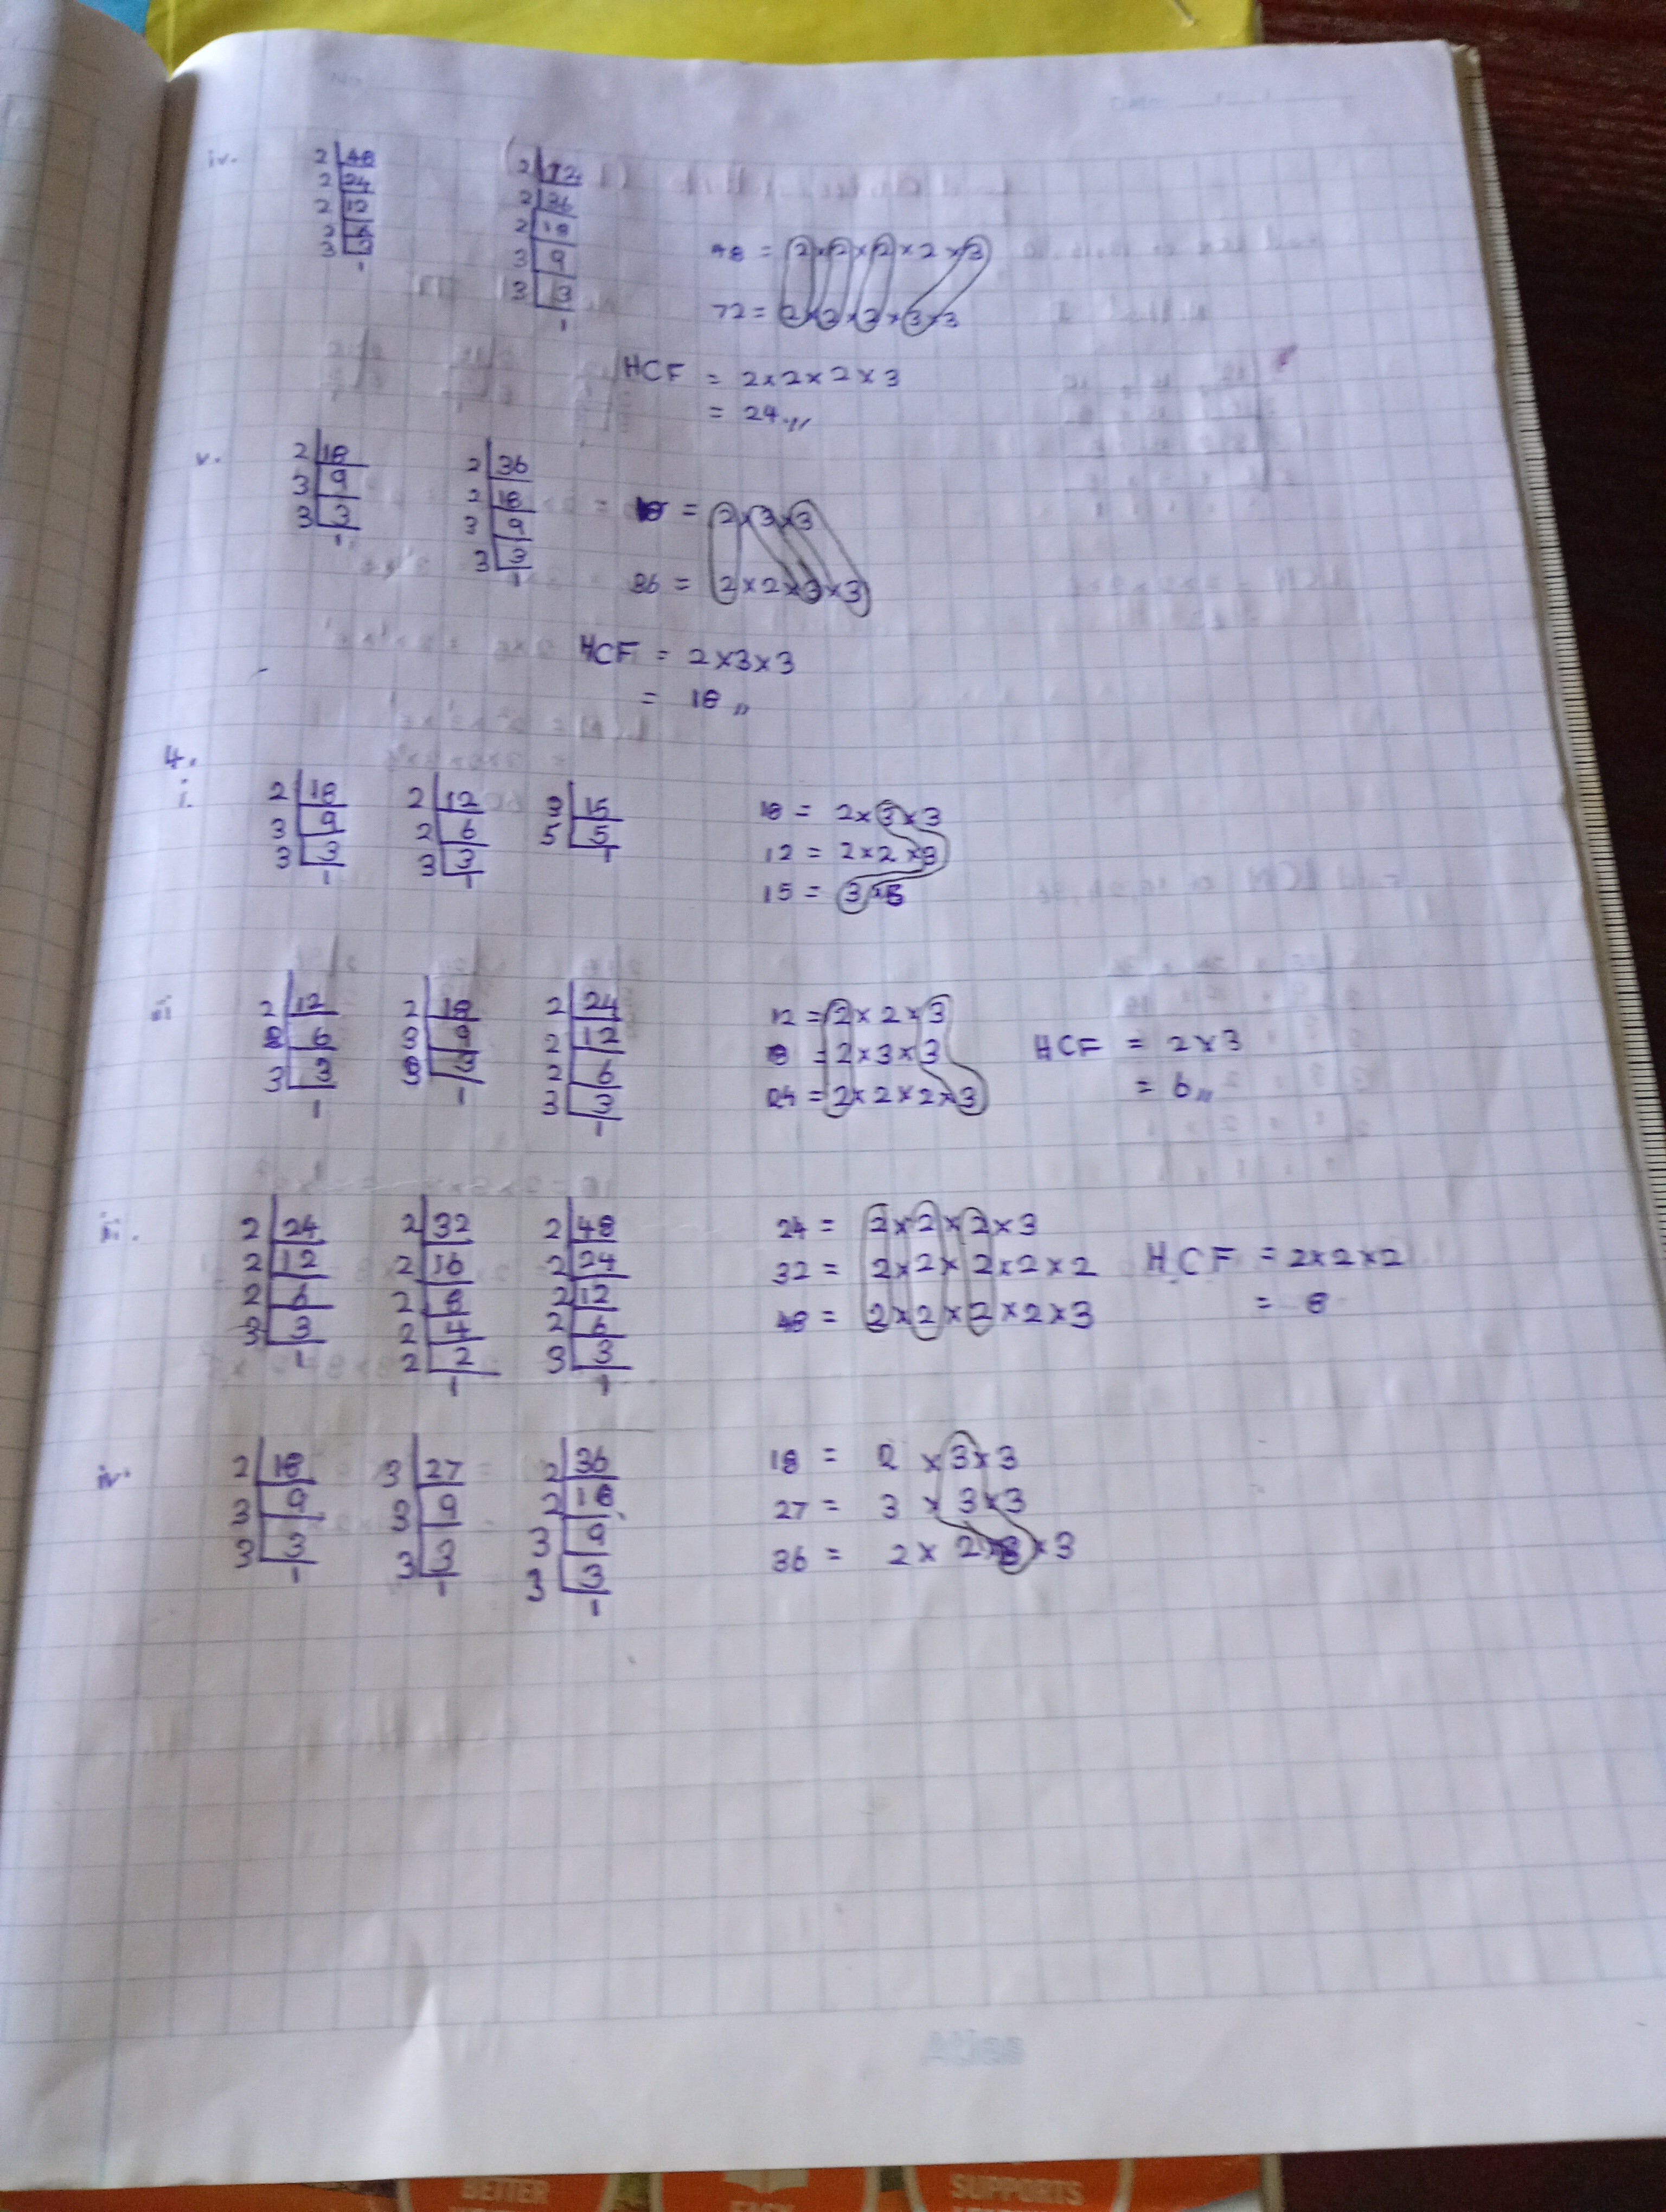 iv.
2 48
2 24
2 12
2 6
3 3
1
2 72
2 36
2 18
3 9
3 3
1
48 = 2×2×2×2×3
72 = 2×2×2×3×3
HCF = 2×2×2×3
= 24,,
v.
2 18
3 9
3 3
1
2 36
2 18
3 9
3 3
1
= 18 = 2×3×3
36 = 2×2×3×3
HCF = 2×3×3
= 18,,
4.
i.
2 18
3 9
3 3
1
2 12
2 6
3 3
1
3 15
5 5
1
18 = 2×3×3
12 = 2×2×3
15 = 3×5
ii
2 12
2 6
3 3
1
2 18
3 9
3 3
1
2 24
2 12
2 6
3 3
1
12 = 2×2×3
18 = 2×3×3
24 = 2×2×2×3
HCF = 2×3
= 6,,
iii.
2 24
2 12
2 6
3 3
1
2 32
2 16
2 8
2 4
2 2
1
2 48
2 24
2 12
2 6
3 3
1
24 = 2×2×2×3
32 = 2×2×2×2×2
48 = 2×2×2×2×3
HCF = 2×2×2
= 8
iv.
2 18
3 9
3 3
1
3 27
3 9
3 3
1
2 36
2 18
3 9
3 3
1
18 = 2 ×3×3
27 = 3 × 3×3
36 = 2× 2×3×3
Atlas
BETTER
EASY
SUPPORTS